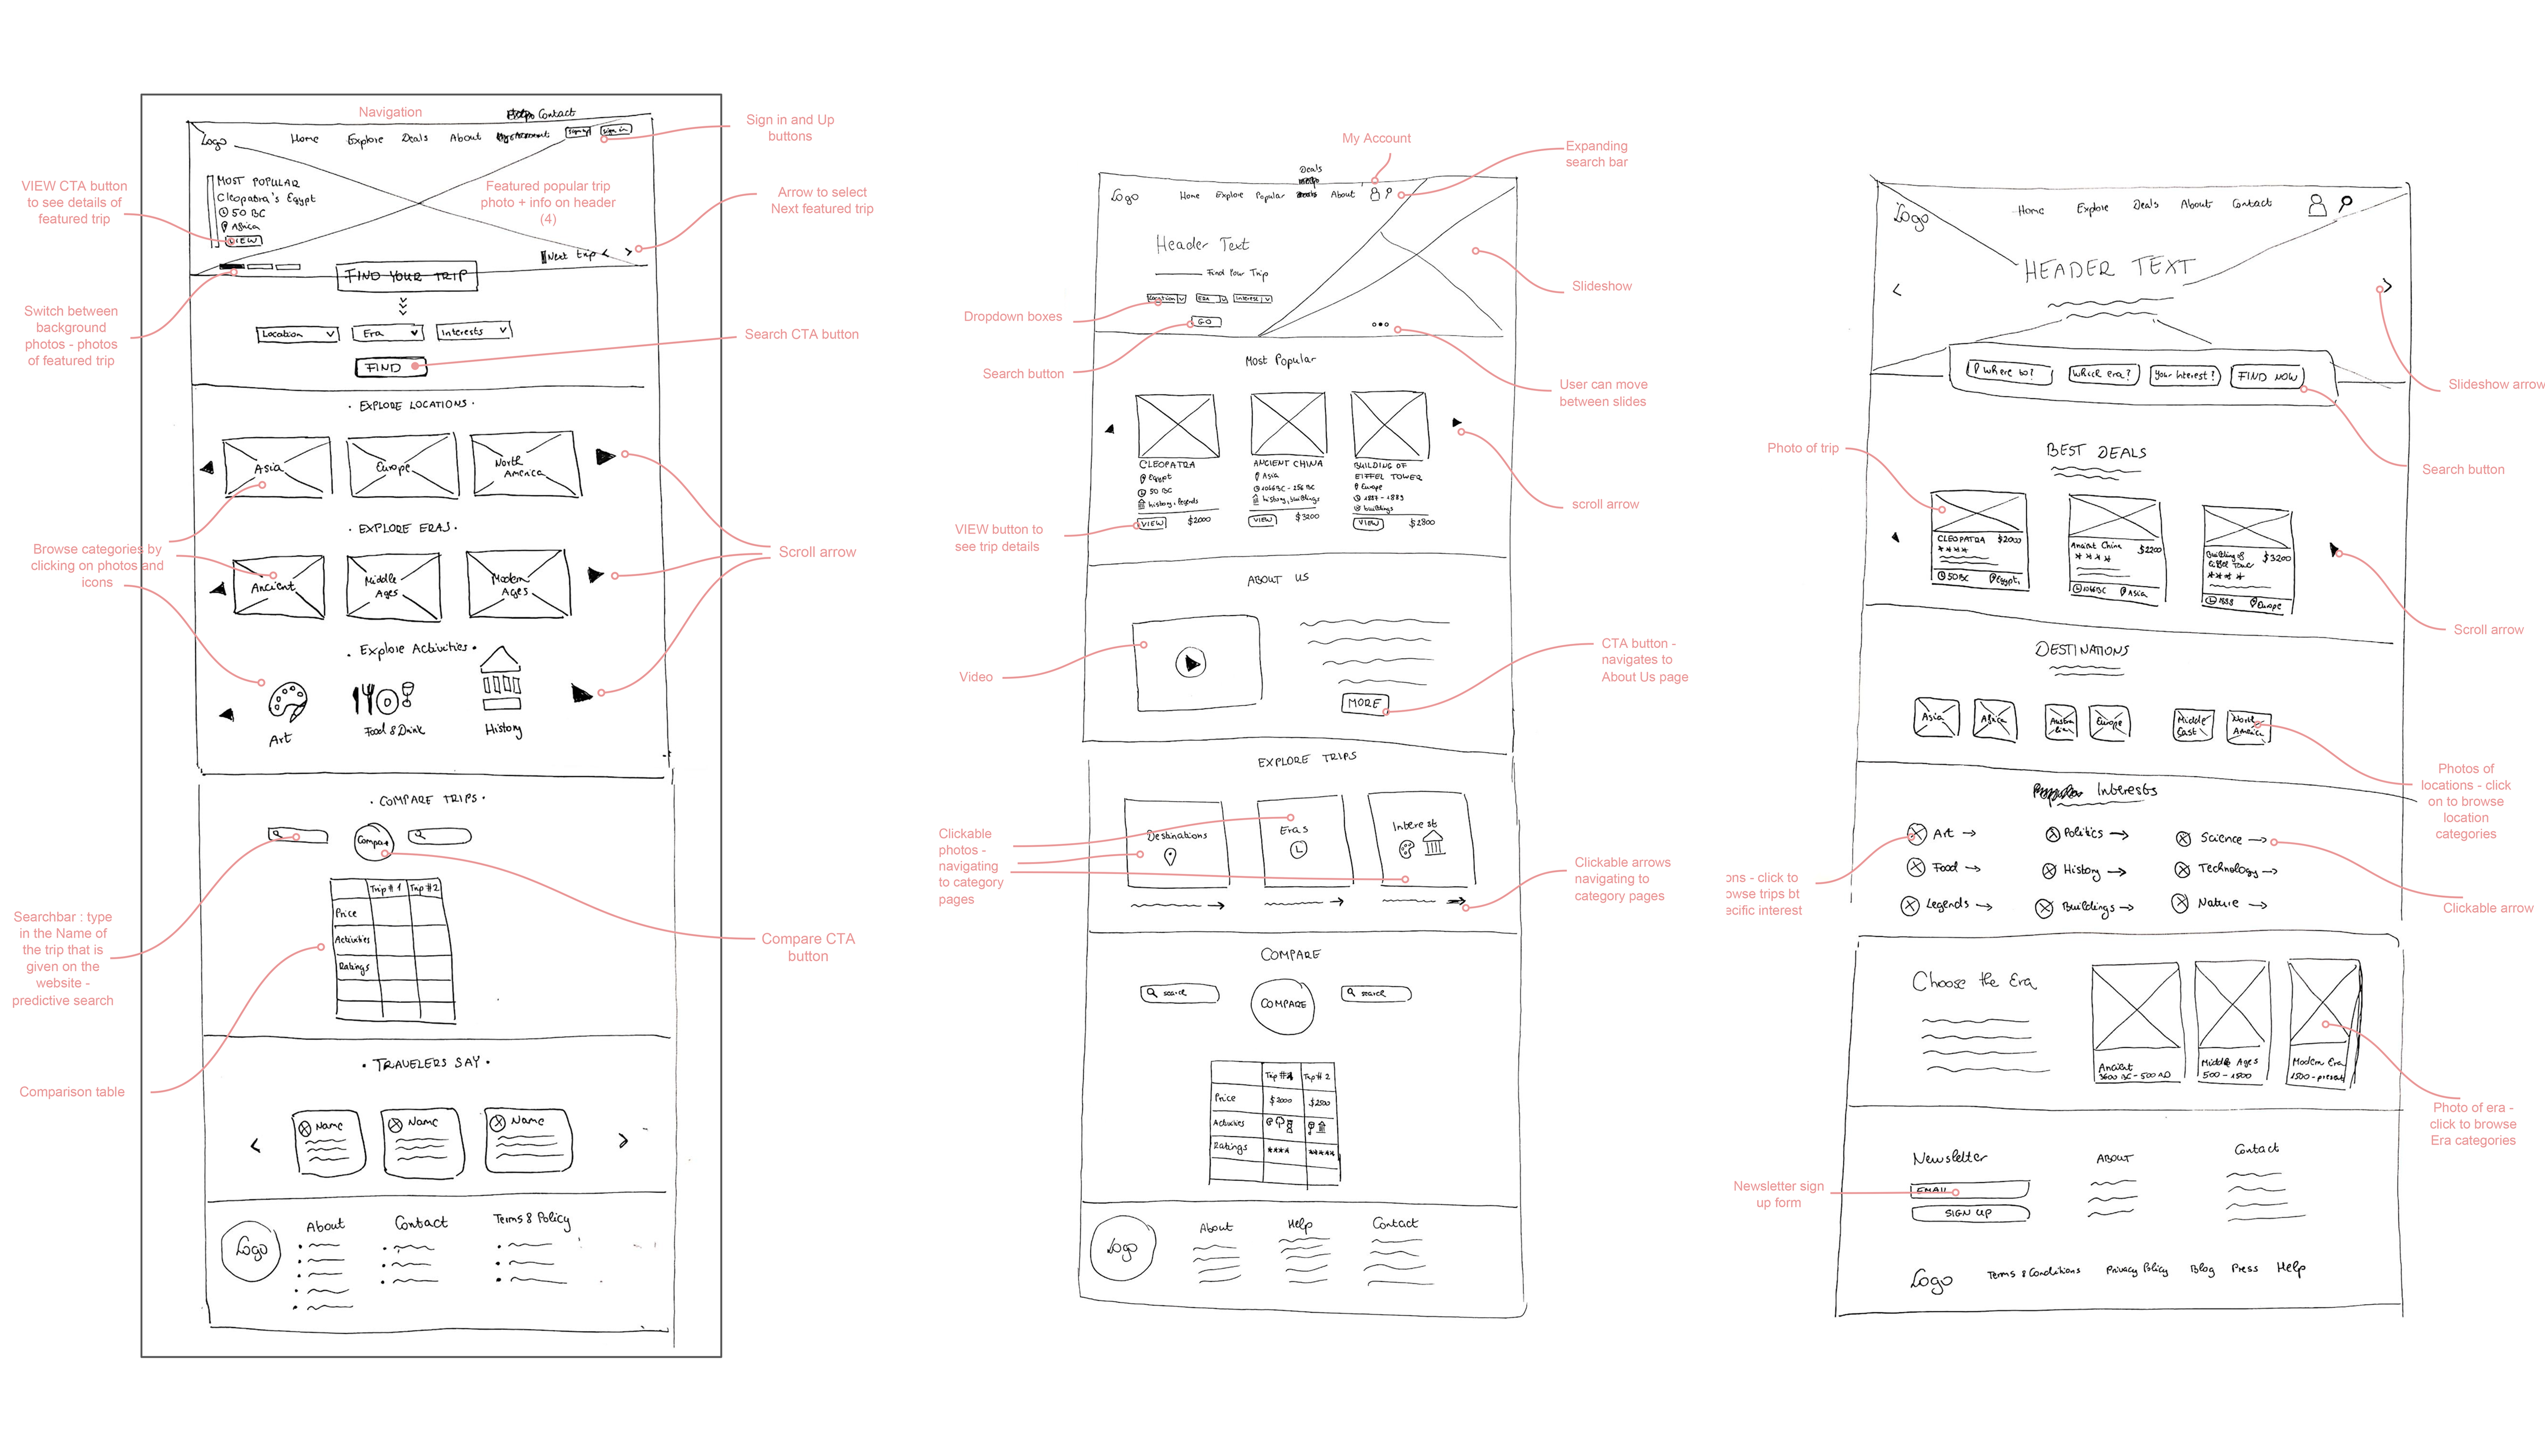 Navigation
Contact
Logo
Home Explore Deals About
sign up sign in
Sign in and Up
buttons
MOST POPULAR
Cleopatra's Egypt
50 BC
Africa
VIEW
VIEW CTA button
to see details of
featured trip
Featured popular trip
photo + info on header
(4)
Arrow to select
Next featured trip
Next trip < >
FIND YOUR TRIP
Switch between
background
photos - photos
of featured trip
Location Era Interests
FIND
Search CTA button
• EXPLORE LOCATIONS •
Asia Europe North
America
• EXPLORE ERAS •
Browse categories by
clicking on photos and
icons
Scroll arrow
Ancient Middle
Ages Modern
Ages
• Explore Activities •
Art Food & Drink History
• COMPARE TRIPS •
Compare
Trip #1 Trip #2
Price
Activities
Ratings
Searchbar : type
in the Name of
the trip that is
given on the
website -
predictive search
Compare CTA
button
Comparison table
• TRAVELERS SAY •
< Name Name Name >
Logo
About Contact Terms & Policy
My Account
Expanding
search bar
Deals
Logo Home Explore Popular About
Header Text
Find Your Trip
Location ERA Interest
GO
Slideshow
Dropdown boxes
Search button
User can move
between slides
Most Popular
CLEOPATRA
Egypt
50 BC
history, legends
VIEW $2000
ANCIENT CHINA
Asia
1066BC - 256 BC
history, buildings
VIEW $3200
BUILDING OF
EIFFEL TOWER
Europe
1887 - 1889
buildings
VIEW $2800
scroll arrow
VIEW button to
see trip details
ABOUT US
Video
MORE
CTA button -
navigates to
About Us page
EXPLORE TRIPS
Destinations Eras Interest
Clickable
photos -
navigating
to category
pages
Clickable arrows
navigating to
category pages
COMPARE
search COMPARE search
Trip #1 Trip # 2
Price $2000 $2500
Activities
Ratings **** *****
Logo
About Help Contact
Logo Home Explore Deals About Contact
HEADER TEXT
< >
Where to? Which era? Your interest? FIND NOW
Slideshow arrow
Search button
Photo of trip
BEST DEALS
CLEOPATRA $2000
****
50BC Egypt
Ancient China $2200
****
1066BC Asia
Building of
Eiffel Tower $3200
****
1888 Europe
Scroll arrow
DESTINATIONS
Asia Africa Europe Middle
East North
America
Photos of
locations - click
on to browse
location
categories
Interests
Art → Politics → Science →
Food → History → Technology →
Legends → Buildings → Nature →
ons - click to
owse trips bt
ecific interest
Clickable arrow
Choose the Era
Ancient
3600 BC - 500 AD
Middle Ages
500 - 1500
Modern Era
1500 - present
Photo of era -
click to browse
Era categories
Newsletter
EMAIL
SIGN UP
ABOUT
Contact
Newsletter sign
up form
Logo Terms & Conditions Privacy Policy Blog Press Help